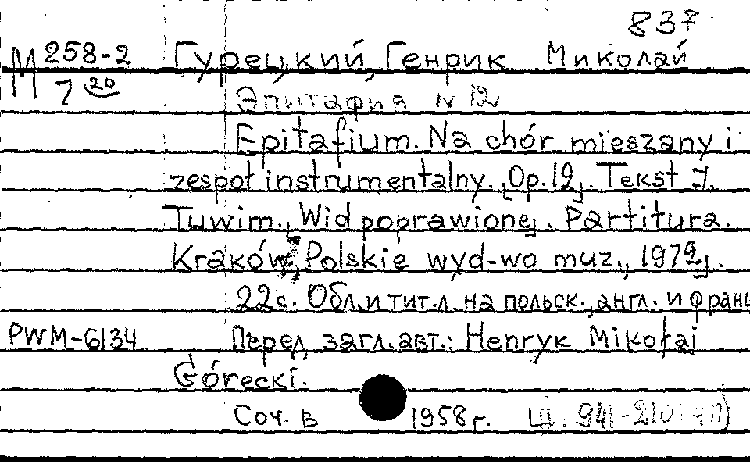 837
М 258-2 Гурецкий, Генрик Миколай
7 20
Эпитафия N 12
Epitafium. Na chór mieszany i
zespoł instrumentalny. [Op.12]. Tekst J.
Tuwim. [Wid poprawione]. Partitura.
Kraków, Polskie wyd-wo muz., [1972].
22с. Обл. и тит. л. на польск., англ. и франц
PWM-6134 Перед загл. авт.: Henryk Mikołaj
Górecki.
Соч. в 1958 г.